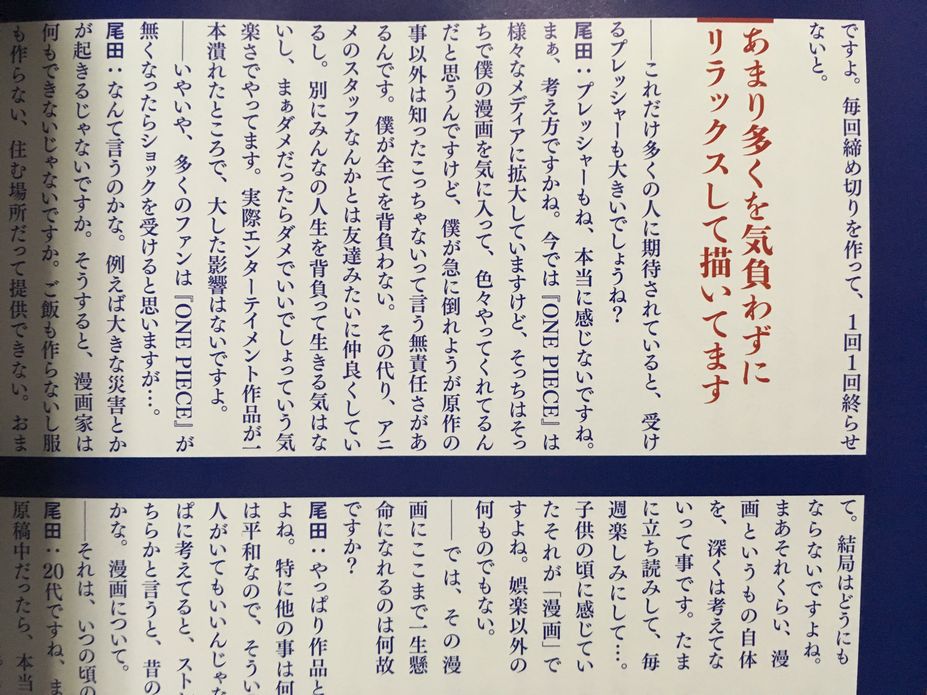 ですよ。毎回締め切りを作って、1回1回終らせ
ないと。
あまり多くを気負わずに
リラックスして描いてます
――これだけ多くの人に期待されていると、受け
るプレッシャーも大きいでしょうね?
尾田:プレッシャーもね、本当に感じないですね。
まぁ、考え方ですかね。今では『ONE PIECE』は
様々なメディアに拡大していますけど、そっちはそっ
ちで僕の漫画を気に入って、色々やってくれてるん
だと思うんですけど、僕が急に倒れようが原作の
事以外は知ったこっちゃないって言う無責任さがあ
るんです。僕が全てを背負わない。その代り、アニ
メのスタッフなんかとは友達みたいに仲良くしてい
るし。別にみんなの人生を背負って生きる気はな
いし、まぁダメだったらダメでいいでしょっていう気
楽さでやってます。実際エンターテイメント作品が一
本潰れたところで、大した影響はないですよ。
――いやいや、多くのファンは『ONE PIECE』が
無くなったらショックを受けると思いますが…。
尾田:なんて言うのかな。例えば大きな災害とか
が起きるじゃないですか。そうすると、漫画家は
何もできないじゃないですか。ご飯も作らないし服
も作らない、住む場所だって提供できない。おま
て。結局はどうにも
ならないですよね。
まあそれくらい、漫
画というもの自体
を、深くは考えてな
いって事です。たま
に立ち読みして、毎
週楽しみにして…。
子供の頃に感じてい
たそれが「漫画」で
すよね。娯楽以外の
何ものでもない。
――では、その漫
画にここまで一生懸
命になれるのは何故
ですか?
尾田:やっぱり作品と
よね。特に他の事は何
は平和なので、そうい
人がいてもいいんじゃな
ぱに考えてると、スト
ちらかと言うと、昔の
かな。漫画について。
――それは、いつの頃の
尾田:20代ですね、ま
原稿中だったら、本当